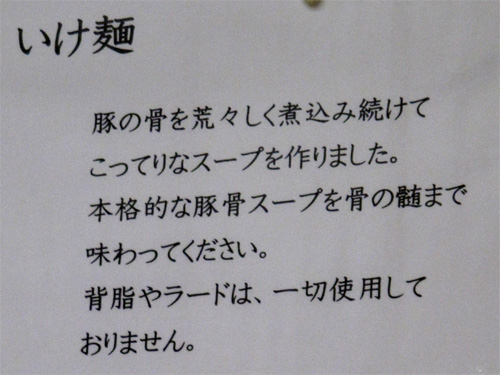 いけ麺
豚の骨を荒々しく煮込み続けて
こってりなスープを作りました。
本格的な豚骨スープを骨の髄まで
味わってください。
背脂やラードは、一切使用して
おりません。